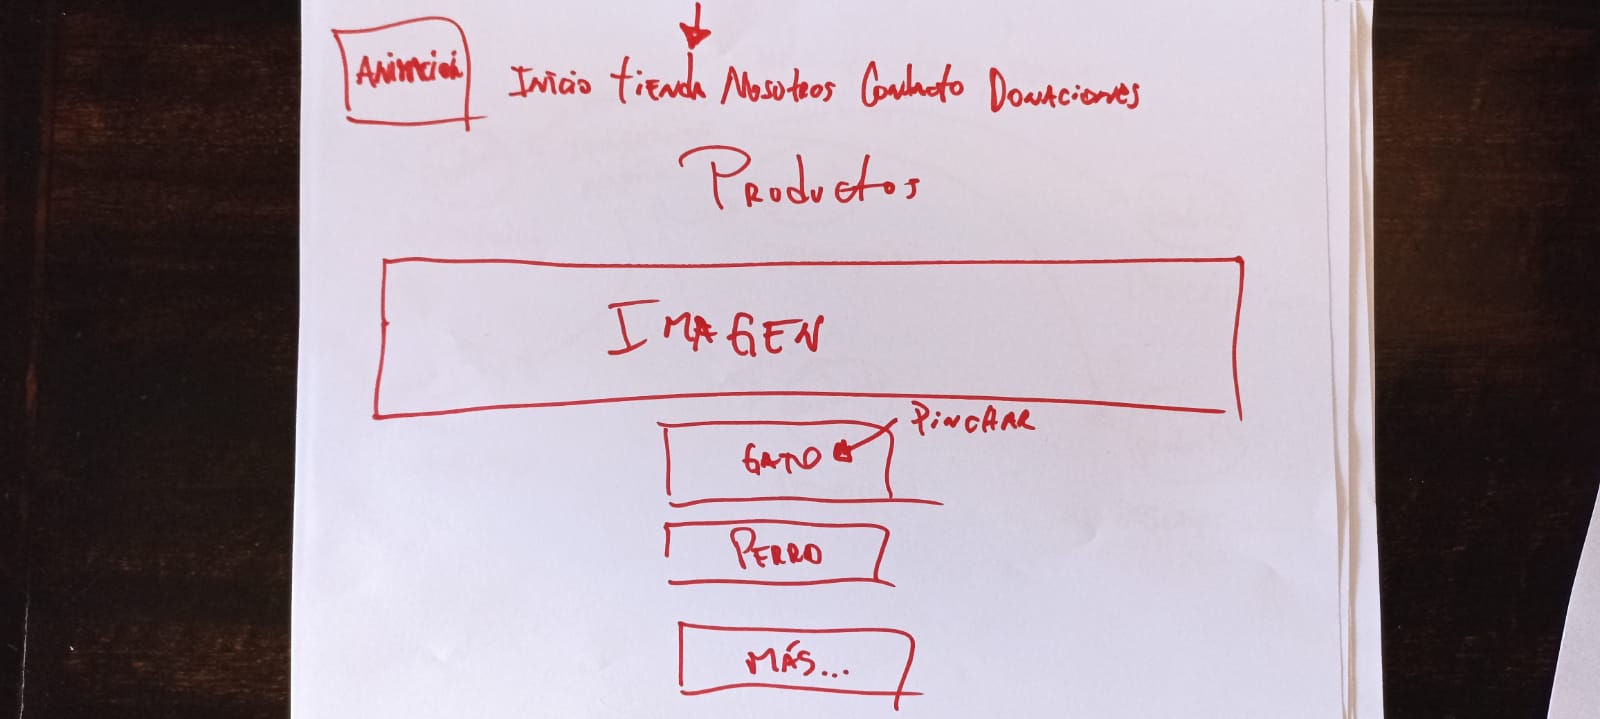 Animación
Inicio tienda Nosotros Contacto Donaciones
Productos
IMAGEN
PINCHAR
GATO
PERRO
MÁS...